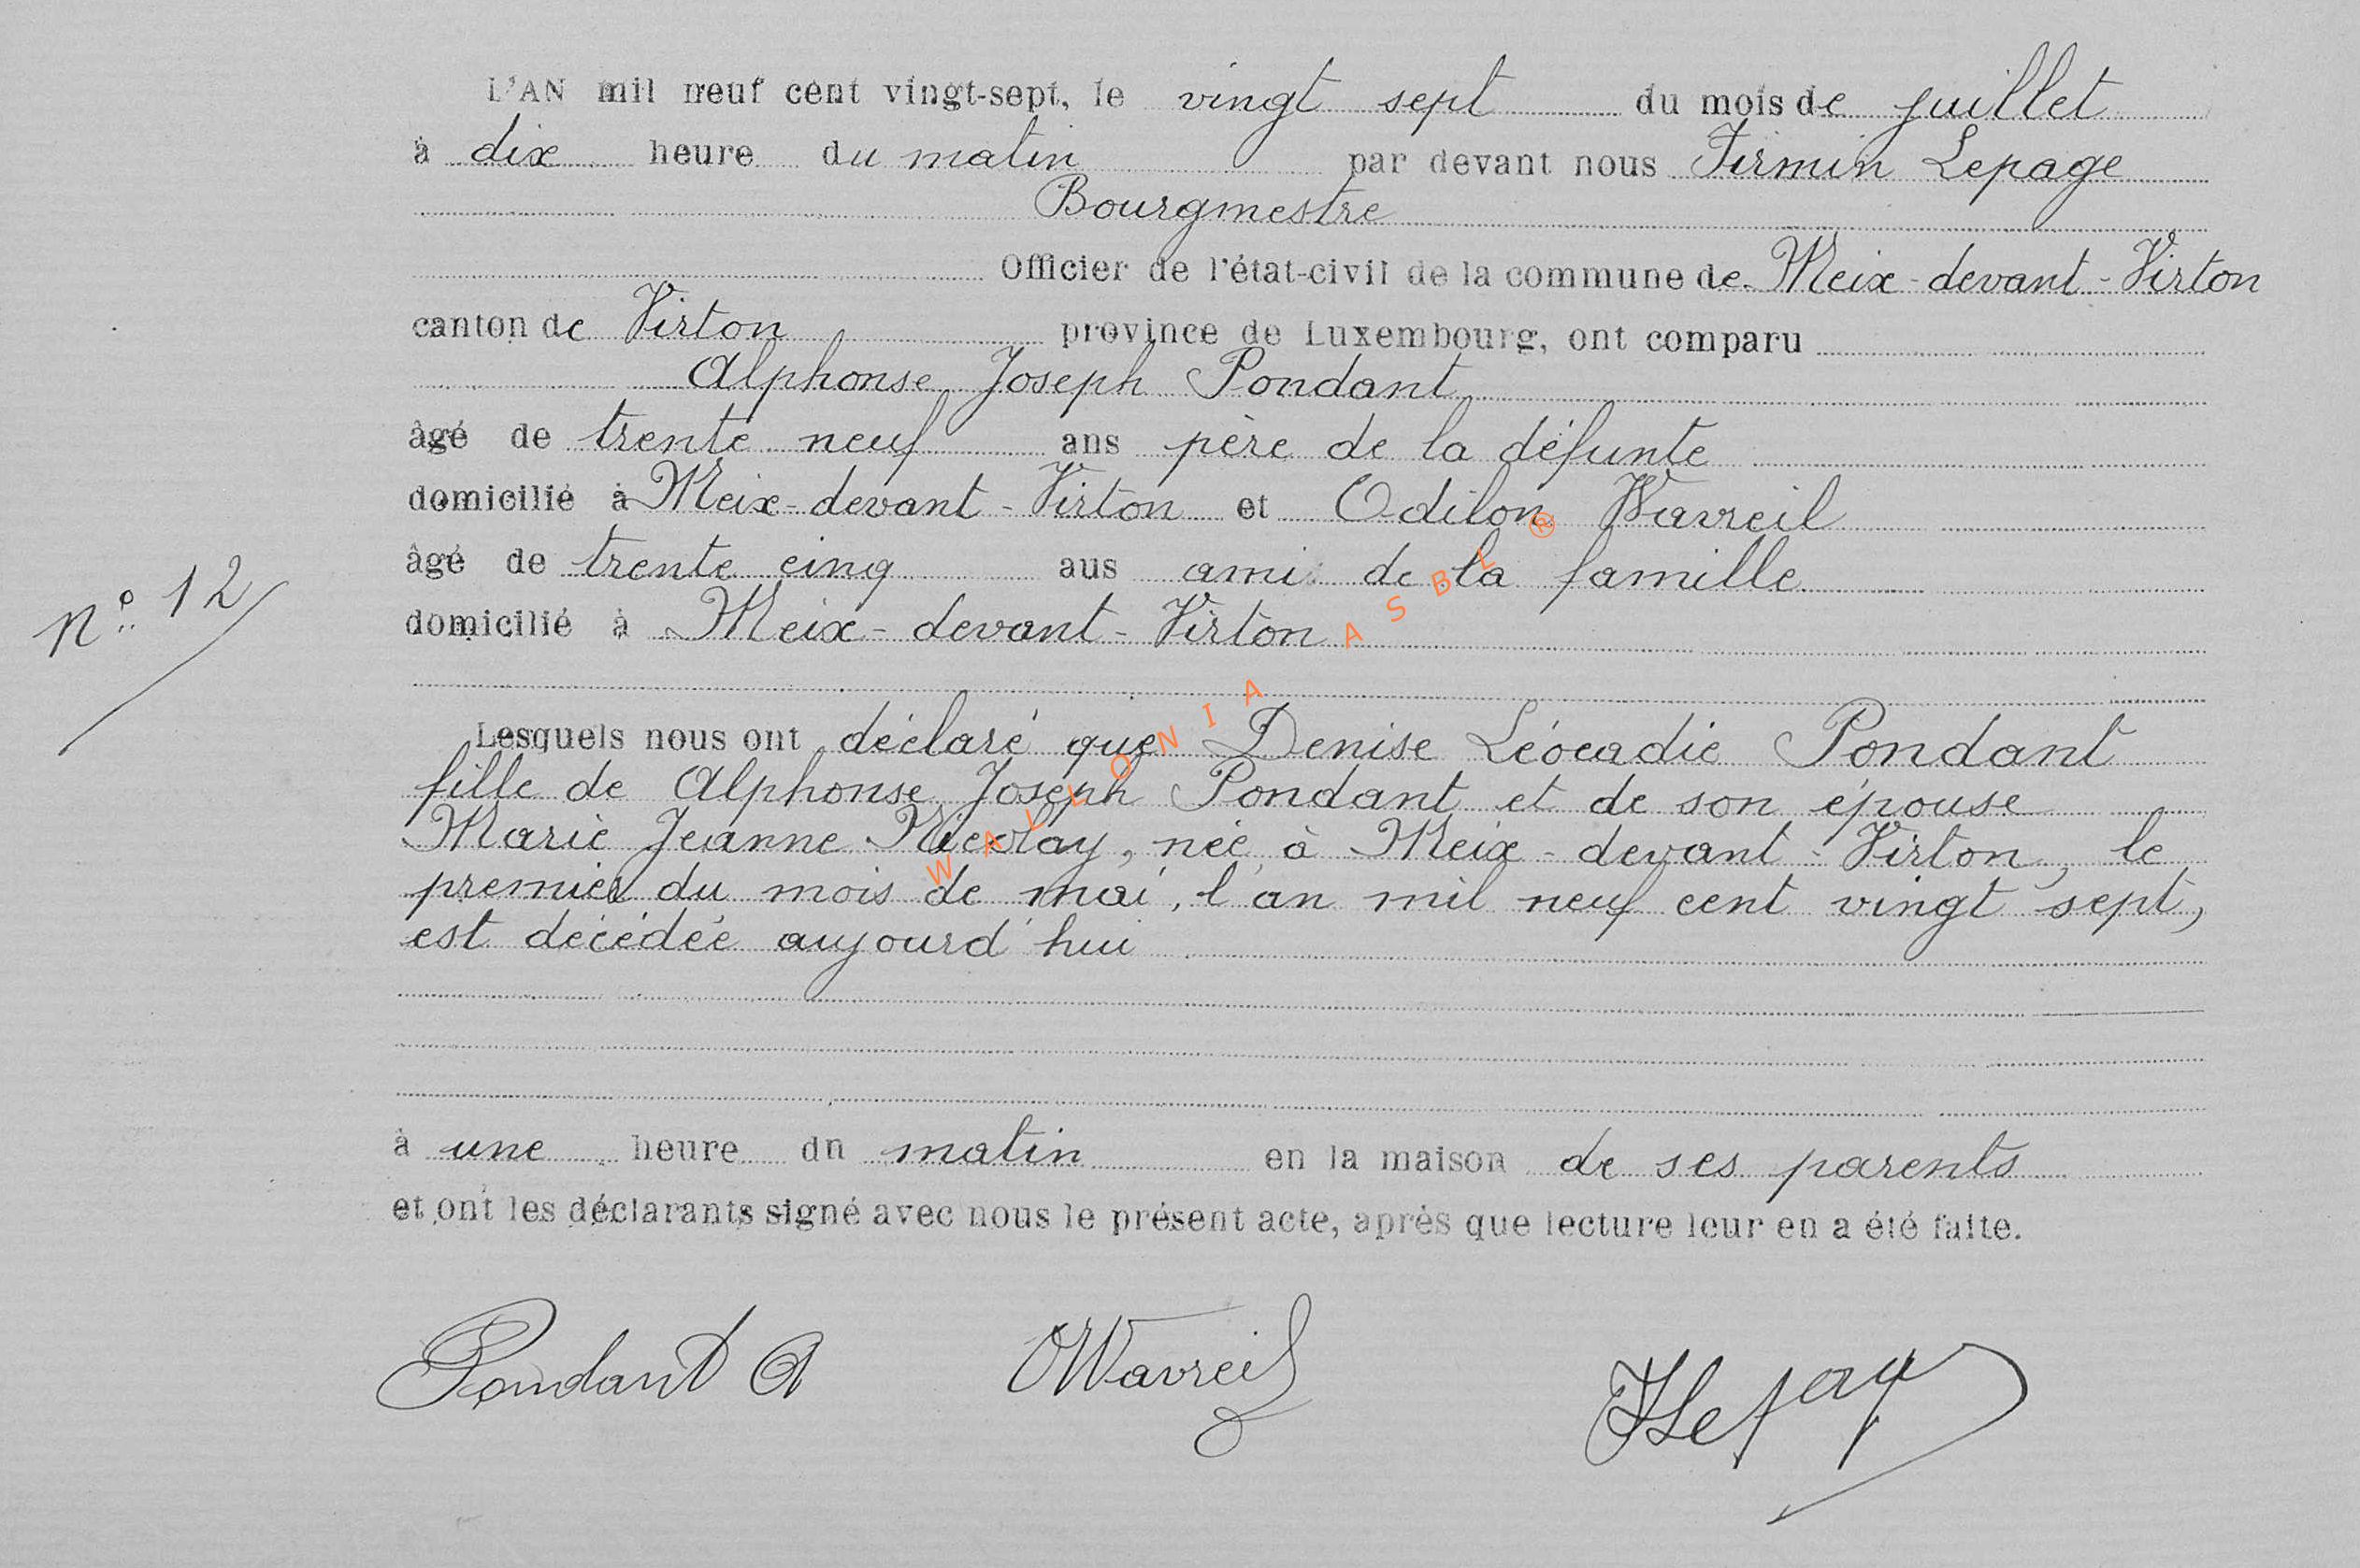 L'AN mil neuf cent vingt-sept, le vingt sept du mois de juillet
à dix heure du matin par devant nous Firmin Lepage
Bourgmestre
Officier de l'état-civil de la commune de Meix-devant-Virton
canton de Virton province de Luxembourg, ont comparu
Alphonse Joseph Pondant
âgé de trente neuf ans père de la défunte
domicilié à Meix-devant-Virton et Odilon Wavreil
âgé de trente cinq aus ami de la famille
domicilié à Meix-devant-Virton
nº 12
Lesquels nous ont déclaré que Denise Léocadie Pondant
fille de Alphonse Joseph Pondant et de son épouse
Marie Jeanne , née à Meix-devant-Virton, le
premier du mois de mai, l'an mil neuf cent vingt sept,
est décédée aujourd'hui
à une heure dn matin en la maison de ses parents
et ont les déclarants signé avec nous le présent acte, après que lecture leur en a été faite.
Pondant A OWavreil FLepage
WALLONIA ASBL ®